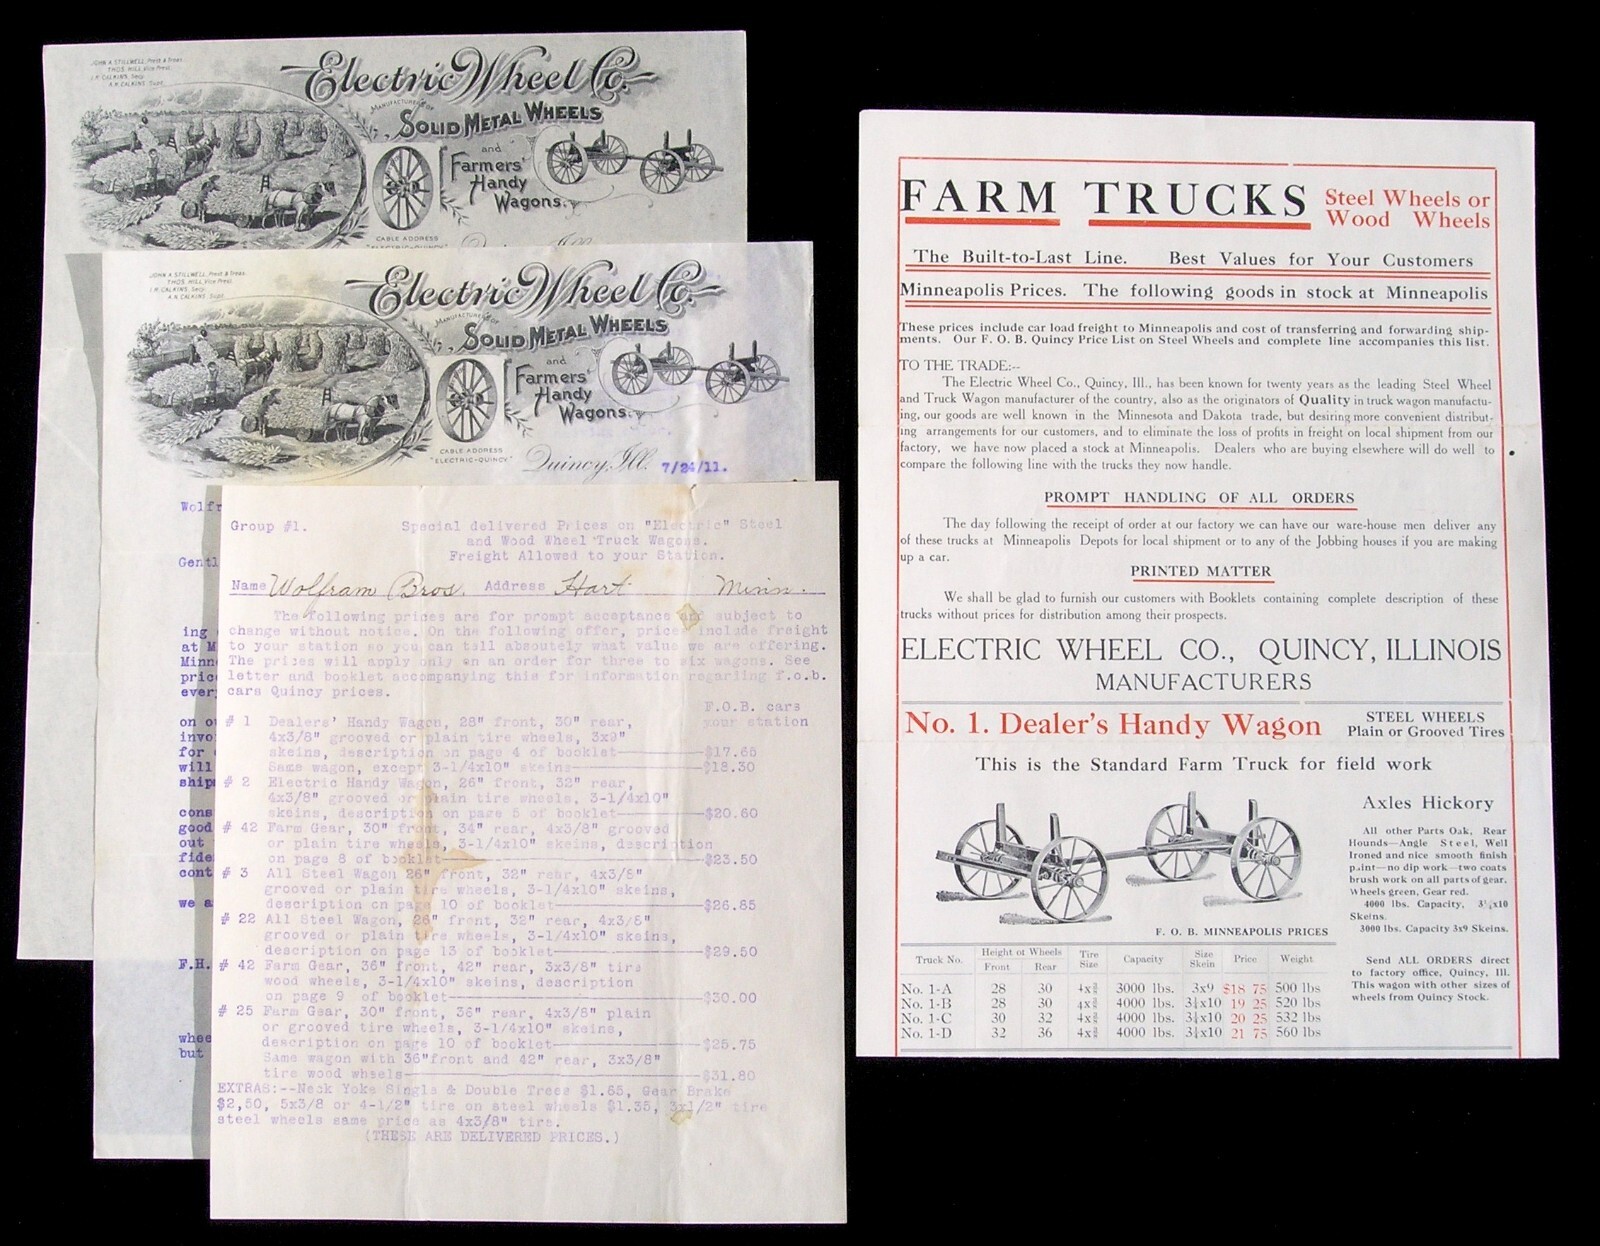 JOHN A. STILLWELL, Prest & Treas.
THOS. HILL, Vice Prest.
I.R. CALKINS, Secy.
A.N. CALKINS, Supt.
Electric Wheel Co.
MANUFACTURERS OF
SOLID METAL WHEELS
and
Farmers'
Handy
Wagons.
CABLE ADDRESS
"ELECTRIC-QUINCY"
Quincy, Ill.
JOHN A. STILLWELL, Prest & Treas.
THOS. HILL, Vice Prest.
I.R. CALKINS, Secy.
A.N. CALKINS, Supt.
Electric Wheel Co.
MANUFACTURERS OF
SOLID METAL WHEELS
and
Farmers'
Handy
Wagons.
CABLE ADDRESS
"ELECTRIC-QUINCY"
Quincy, Ill. 7/24/11.
Wolfr
Gentl
ing
at M
Minn
pric
ever
on o
invo
for
will
ship
cons
good
out
fide
cont
we a
F.H.
whee
but
Group #1. Special delivered Prices on "Electric" Steel
and Wood Wheel Truck Wagons.
Freight Allowed to your Station.
Name Wolfram Bros. Address Hart Minn.
The following prices are for prompt acceptance and subject to
change without notice. On the following offer, prices include freight
to your station so you can tell absoutely what value we are offering.
The prices will apply only on an order for three to six wagons. See
letter and booklet accompanying this for information regarding f.o.b.
cars Quincy prices.
F.O.B. cars
your station
# 1 Dealers' Handy Wagon, 28" front, 30" rear,
4x3/8" grooved or plain tire wheels, 3x9"
skeins, description on page 4 of booklet-----$17.65
Same wagon, except 3-1/4x10" skeins-----$18.30
# 2 Electric Handy Wagon, 26" front, 32" rear,
4x3/8" grooved or plain tire wheels, 3-1/4x10"
skeins, description on page 5 of booklet-----$20.60
# 42 Farm Gear, 30" front, 34" rear, 4x3/8" grooved
or plain tire wheels, 3-1/4x10" skeins, description
on page 8 of booklet-----$23.50
# 3 All Steel Wagon 26" front, 32" rear, 4x3/8"
grooved or plain tire wheels, 3-1/4x10" skeins,
description on page 10 of booklet-----$26.85
# 22 All Steel Wagon, 26" front, 32" rear, 4x3/8",
grooved or plain tire wheels, 3-1/4x10" skeins,
description on page 13 of booklet-----$29.50
# 42 Farm Gear, 36" front, 42" rear, 3x3/8" tire
wood wheels, 3-1/4x10" skeins, description
on page 9 of booklet-----$30.00
# 25 Farm Gear, 30" front, 36" rear, 4x3/8" plain
or grooved tire wheels, 3-1/4x10" skeins,
description on page 10 of booklet-----$25.75
Same wagon with 36"front and 42" rear, 3x3/8"
tire wood wheels-----$31.80
EXTRAS:--Neck Yoke Single & Double Trees $1.65, Gear Brake
$2,50, 5x3/8 or 4-1/2" tire on steel wheels $1.35, 3x1/2" tire
steel wheels same price as 4x3/8" tire.
(THESE ARE DELIVERED PRICES.)
FARM TRUCKS Steel Wheels or
Wood Wheels
The Built-to-Last Line. Best Values for Your Customers
Minneapolis Prices. The following goods in stock at Minneapolis
These prices include car load freight to Minneapolis and cost of transferring and forwarding ship-
ments. Our F. O. B. Quincy Price List on Steel Wheels and complete line accompanies this list.
TO THE TRADE:--
The Electric Wheel Co., Quincy, Ill., has been known for twenty years as the leading Steel Wheel
and Truck Wagon manufacturer of the country, also as the originators of Quality in truck wagon manufactu-
ing, our goods are well known in the Minnesota and Dakota trade, but desiring more convenient distribut-
ing arrangements for our customers, and to eliminate the loss of profits in freight on local shipment from our
factory, we have now placed a stock at Minneapolis. Dealers who are buying elsewhere will do well to
compare the following line with the trucks they now handle.
PROMPT HANDLING OF ALL ORDERS
The day following the receipt of order at our factory we can have our ware-house men deliver any
of these trucks at Minneapolis Depots for local shipment or to any of the Jobbing houses if you are making
up a car.
PRINTED MATTER
We shall be glad to furnish our customers with Booklets containing complete description of these
trucks without prices for distribution among their prospects.
ELECTRIC WHEEL CO., QUINCY, ILLINOIS
MANUFACTURERS
No. 1. Dealer's Handy Wagon STEEL WHEELS
Plain or Grooved Tires
This is the Standard Farm Truck for field work
Axles Hickory
All other Parts Oak, Rear
Hounds—Angle Steel, Well
Ironed and nice smooth finish
paint—no dip work—two coats
brush work on all parts of gear.
Wheels green, Gear red.
4000 lbs. Capacity, 3¼x10
Skeins.
3000 lbs. Capacity 3x9 Skeins.
Send ALL ORDERS direct
to factory office, Quincy, Ill.
This wagon with other sizes of
wheels from Quincy Stock.
F. O. B. MINNEAPOLIS PRICES
Truck No. Height of Wheels Front Rear Tire Size Capacity Size Skein Price Weight
No. 1-A 28 30 4x⅜ 3000 lbs. 3x9 $18 75 500 lbs
No. 1-B 28 30 4x⅜ 4000 lbs. 3¼x10 19 25 520 lbs
No. 1-C 30 32 4x⅜ 4000 lbs. 3¼x10 20 25 532 lbs
No. 1-D 32 36 4x⅜ 4000 lbs. 3¼x10 21 75 560 lbs